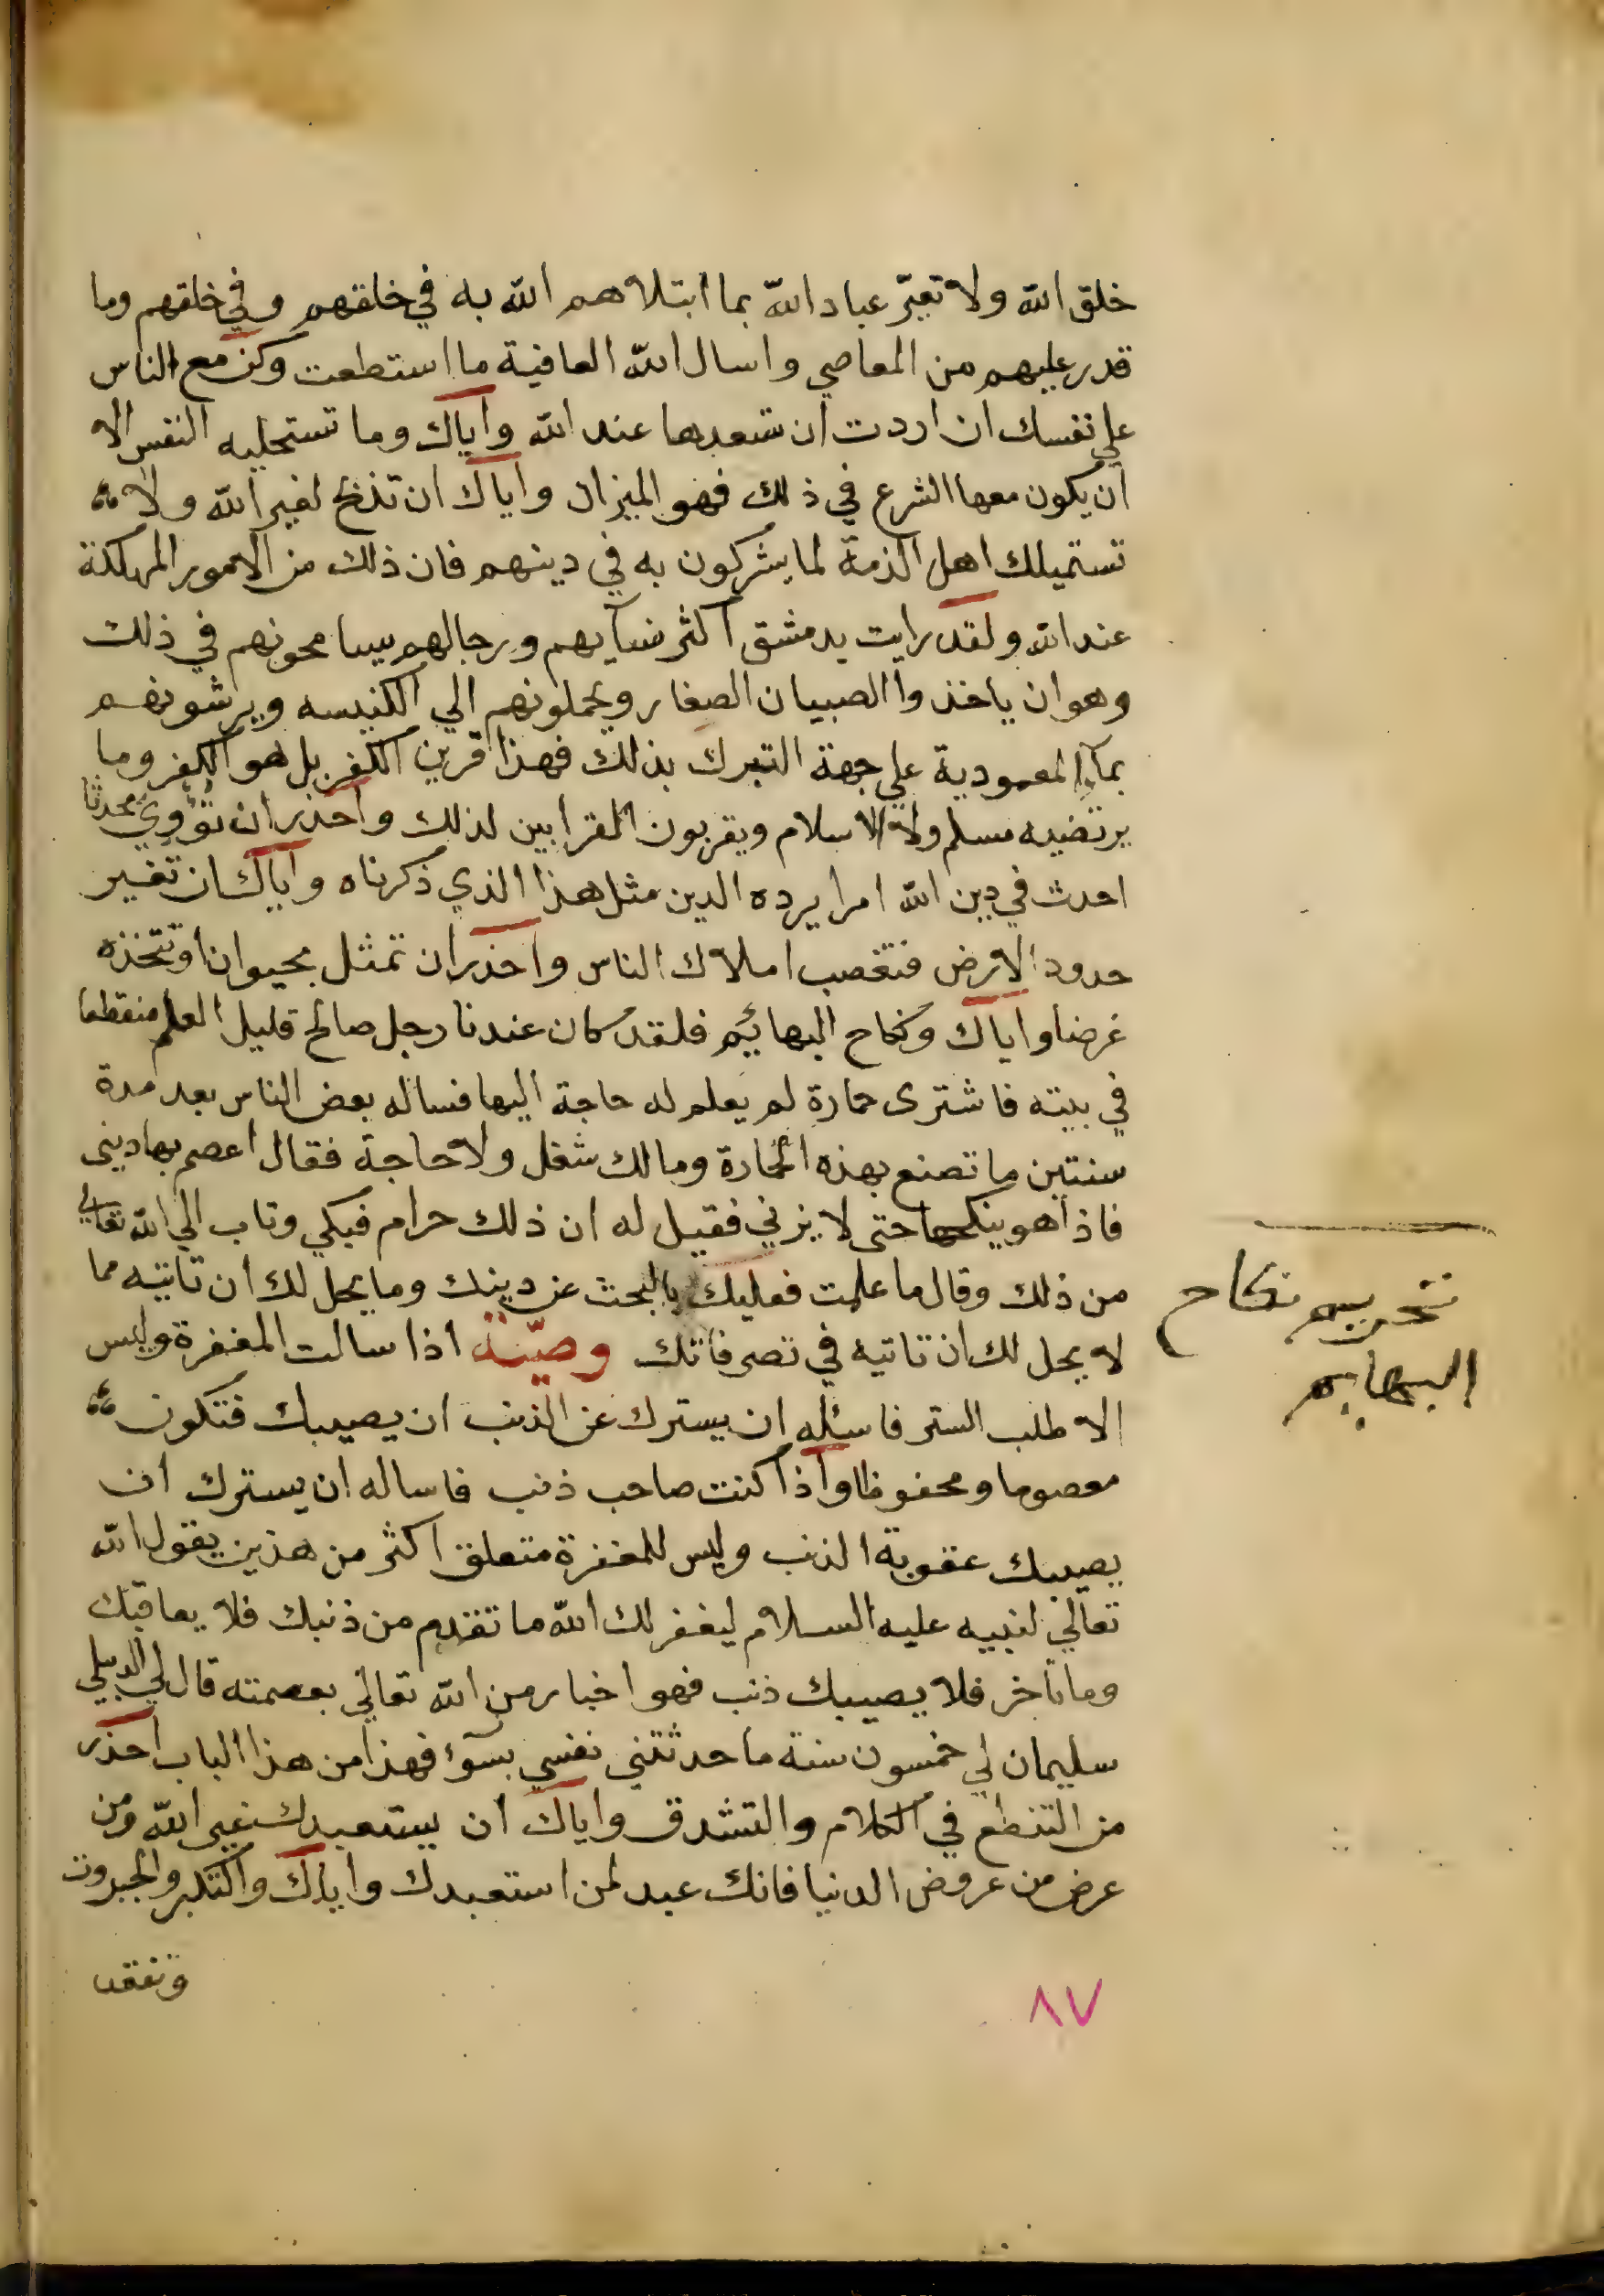 خلق الله ولا تعيّر عباد الله بما ابتلاهم الله به في خلقهم وفي خلقهم وما
قدر عليهم من المعاصي واسال الله العافية ما استطعت وكن مع الناس
علي نفسك ان اردت ان تسعدها عند الله واياك وما تستحليه النفس الا
ان يكون معها الشرع في ذلك فهو الميزان واياك ان تذبح لغير الله ولا
تستميلك اهل الذمة لما يشركون به في دينهم فان ذلك من الامور المهلكة
عند الله ولقد رايت بدمشق اكثر نسآيهم ورجالهم يسامحونهم في ذلك
وهو ان ياخذوا الصبيان الصغار ويحملونهم الي الكنيسه ويرشونهم
بمآ المعمودية علي جهة التبرك بذلك فهذا قرين الكفر بل هو الكفر وما
يرتضيه مسلم ولا الاسلام ويقربون القرابين لذلك واحذر ان تؤوي محدثا
احدث في دين الله امرا يرده الدين مثل هذا الذي ذكرناه واياك ان تغير
حدود الارض فتغصب املاك الناس واحذر ان تمثل بحيوان او تتخذه
غرضا واياك ونكاح البهائم فلقد كان عندنا رجل صالح قليل العلم منقطعا
في بيته فاشترى حمارة لم يعلم له حاجة اليها فساله بعض الناس بعد مدة
سنتين ما تصنع بهذه الحمارة ومالك شغل ولا حاجة فقال اعصم بها ديني
فاذا هو ينكحها حتى لا يزني فقيل له ان ذلك حرام فبكي وتاب الي الله تعالي
من ذلك وقال ما علمت فعليك بالبحث عن دينك وما يحل لك ان تاتيه مما
لا يحل لك ان تاتيه في تصرفاتك وصيّة اذا سالت المغفرة وليس
الا طلب الستر فاسئله ان يسترك عن الذنب ان يصيبك فتكون
معصوما ومحفوظا واذا كنت صاحب ذنب فاساله ان يسترك ان
يصيبك عقوبة الذنب وليس للمغفرة متعلق اكثر من هذين يقول الله
تعالي لنبيه عليه السلام ليغفر لك الله ما تقدم من ذنبك فلا يعاقبك
وما تاخر فلا يصيبك ذنب فهو اخبار من الله تعالي بعصمته قال لي الدبيلي
سليمان لي خمسون سنة ما حدثتني نفسي بسوٓء فهذا من هذا الباب احذر
من التنطع في الكلام والتشدق واياك ان يستعبدك غير الله ومن
عرض من عروض الدنيا فانك عبد لمن استعبدك واياك والتكبر والجبروت
وتفقد
٨٧
تحريم نكاح
البهايم